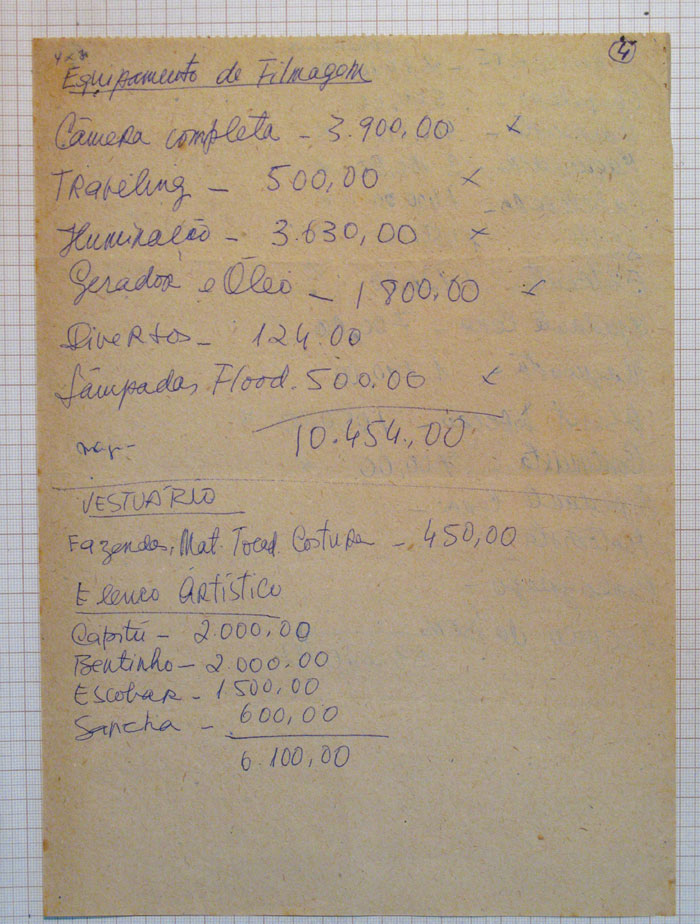 4
Equipamento de Filmagem
Câmera completa - 3.900,00 x
Traveling - 500,00 x
Iluminação - 3.630,00 x
Gerador e Óleo - 1800,00 x
Divertos - 124.00
Lâmpadas Flood. 500.00 x
10.454,00
VESTUÁRIO
Fazendas, Mat. Costura - 450,00
Elenco Artístico
Capitú - 2.000,00
Bentinho - 2.000.00
Escobar - 1500,00
Sancha - 600,00
6.100,00